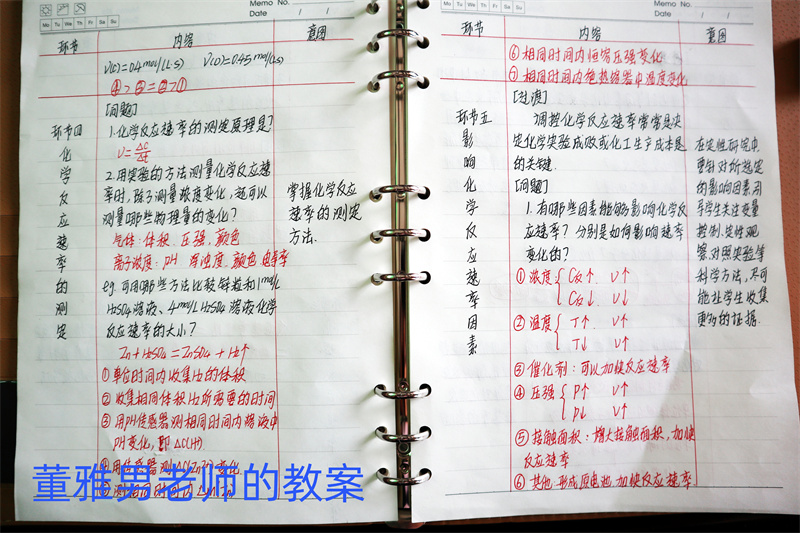 Memo No.
Date / /
Mo Tu We Th Fr Sa Su
环节 内容 意图
V(C)=0.4mol/(L·s) V(D)=0.45mol/(L·s)
④>③=②>①
环节四
化学反应速率的测定
[问题]
1.化学反应速率的测定原理是?
V=ΔC/Δt
2.用实验的方法测量化学反应速
率时,除了测量浓度变化,还可以
测量哪些物理量的变化?
气体:体积、压强、颜色
离子浓度:PH 浑浊度、颜色 电导率
eg.可用哪些方法比较锌粒和1mol/L
H2SO4溶液、4mol/L H2SO4溶液化学
反应速率的大小?
Zn+H2SO4=ZnSO4+H2↑
①单位时间内收集H2的体积
②收集相同体积H2所需要的时间
③用PH传感器测相同时间内溶液中
PH变化,即ΔC(H+)
掌握化学反应
速率的测定
方法.
董雅男老师的教案
Memo No.
Date / /
Mo Tu We Th Fr Sa Su
环节 内容 意图
⑥相同时间内恒容压强变化
⑦相同时间内绝热容器中温度变化
环节五
影响化学反应速率因素
[过渡]
调控化学反应速率常常是决
定化学实验成败或化工生产成本
的关键.
[问题]
1.有哪些因素能够影响化学反
应速率?分别是如何影响速率
变化的?
①浓度{C反↑ V↑
C反↓ V↓
②温度{T↑ V↑
T↓ V↓
③催化剂:可以加快反应速率
④压强{P↑ V↑
P↓ V↓
⑤接触面积:增大接触面积,加快
反应速率
⑥其他:形成原电池,加快反应速率
在定性研究中,
要针对所选定
的影响因素,引
导学生关注变量
控制、定性观
察、对照实验等
科学方法,尽可
能让学生收集
更多的证据.